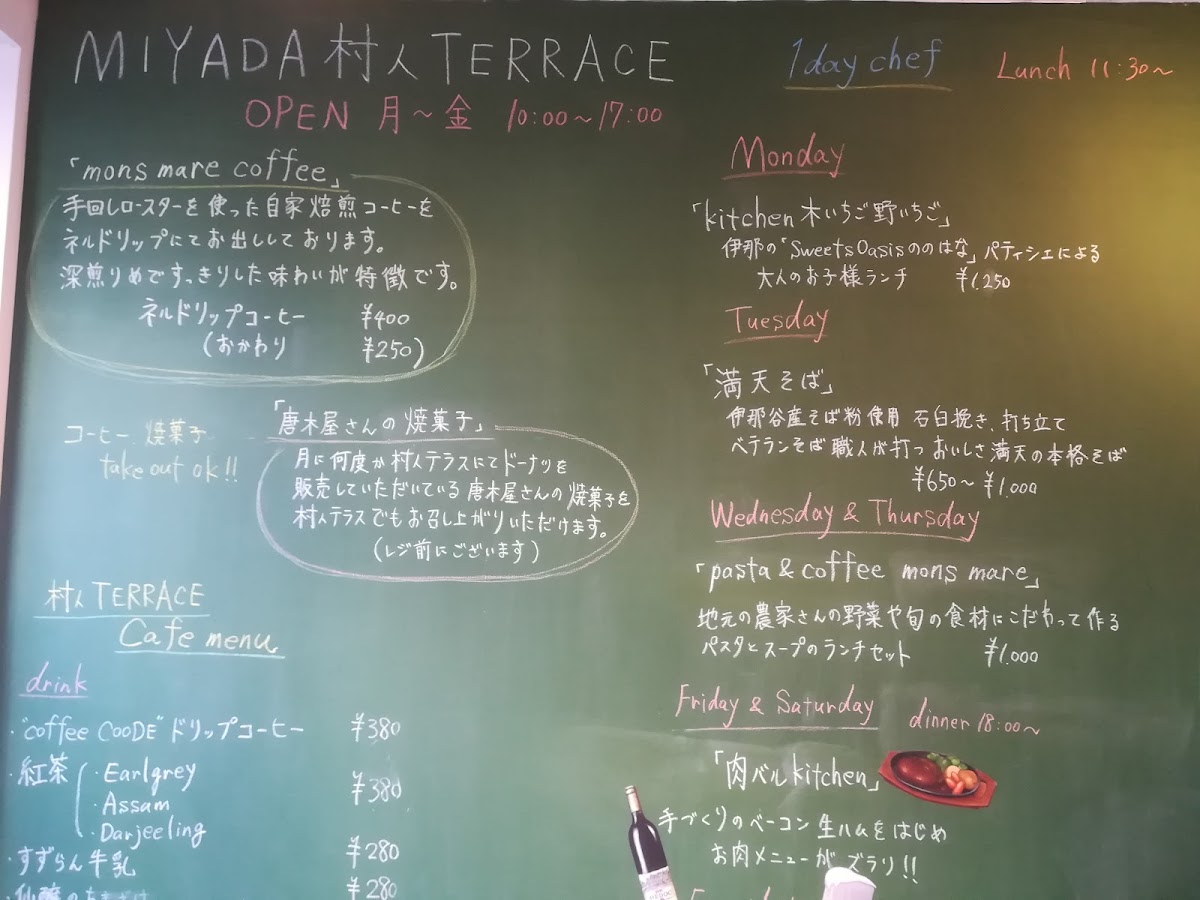 MIYADA 村人 TERRACE
OPEN 月〜金 10:00〜17:00
「mons mare coffee」
手回しロースターを使った自家焙煎コーヒーを
ネルドリップにてお出ししております。
深煎りめですっきりした味わいが特徴です。
ネルドリップコーヒー ¥400
(おかわり ¥250)
コーヒー、焼菓子
take out ok!!
「唐木屋さんの焼菓子」
月に何度か村人テラスにてドーナツを
販売していただいている唐木屋さんの焼菓子を
村人テラスでもお召し上がりいただけます。
(レジ前にございます)
村人 TERRACE
Cafe menu
drink
・"coffee COODE"ドリップコーヒー ¥380
・紅茶 ・Earlgrey
・Assam ¥380
・Darjeeling
・すずらん牛乳 ¥280
¥280
1day chef Lunch 11:30〜
Monday
「kitchen 木いちご野いちご」
伊那の「Sweets Oasisののはな」パティシエによる
大人のお子様ランチ ¥1,250
Tuesday
「満天そば」
伊那谷産そば粉使用 石臼挽き、打ち立て
ベテランそば職人が打つおいしさ満天の本格そば
¥650〜¥1,000
Wednesday & Thursday
「pasta & coffee mons mare」
地元の農家さんの野菜や旬の食材にこだわって作る
パスタとスープのランチセット ¥1,000
Friday & Saturday dinner 18:00〜
「肉バルkitchen」
手づくりのベーコン生ハムをはじめ
お肉メニューがズラリ!!